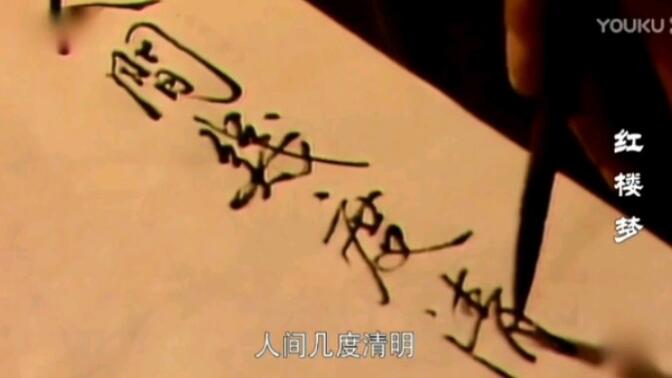 YOUKU
红楼梦
間幾度清
人间几度清明